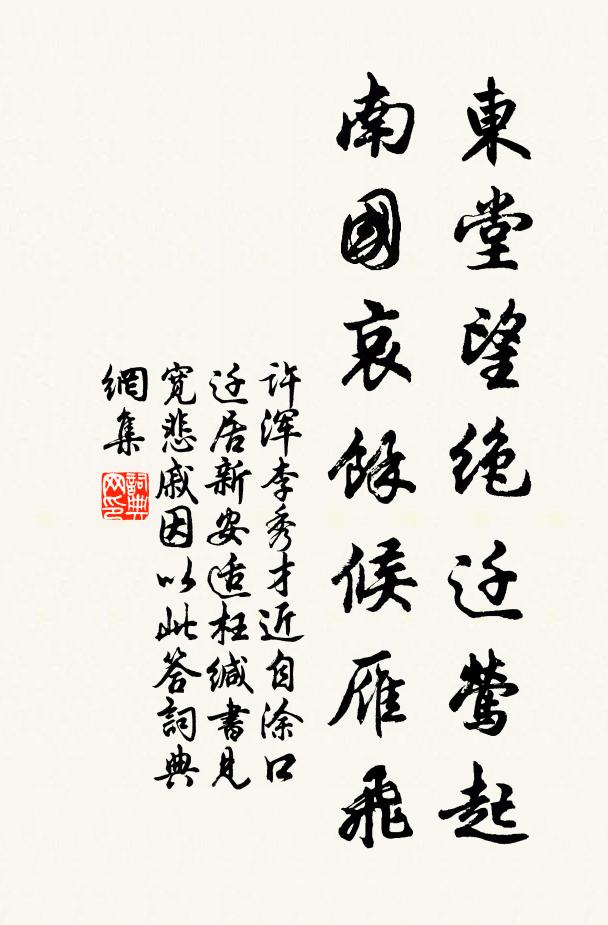 東堂望絶迁鶯起
南國哀餘候雁飛
許渾李秀才近自涂口
迁居新安适枉緘書見
寬悲戚因以此答詞典
網集
詞典
网印